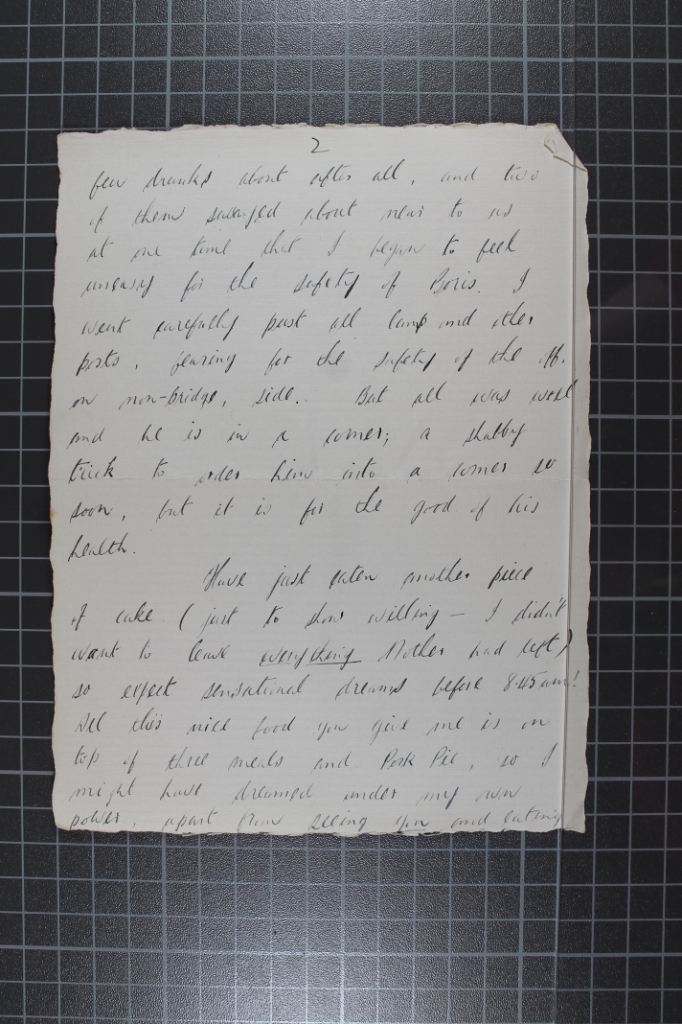 2
few drunks about after all, and two
of them swayed about near to us
at one time that I began to feel
uneasy for the safety of Boris. I
went carefully past all lamp and other
posts, fearing for the safety of the off,
or non-bridge, side. But all was well
and he is in a corner; a shabby
trick to order him into a corner so
soon, but it is for the good of his
health.
Have just eaten another piece
of cake (just to show willing — I didn't
want to leave everything Mother had left)
so expect sensational dreams before 8.45 am!
All this nice food you give me is on
top of three meals and Pork Pie, so I
might have dreamed under my own
power, apart from seeing you and eating